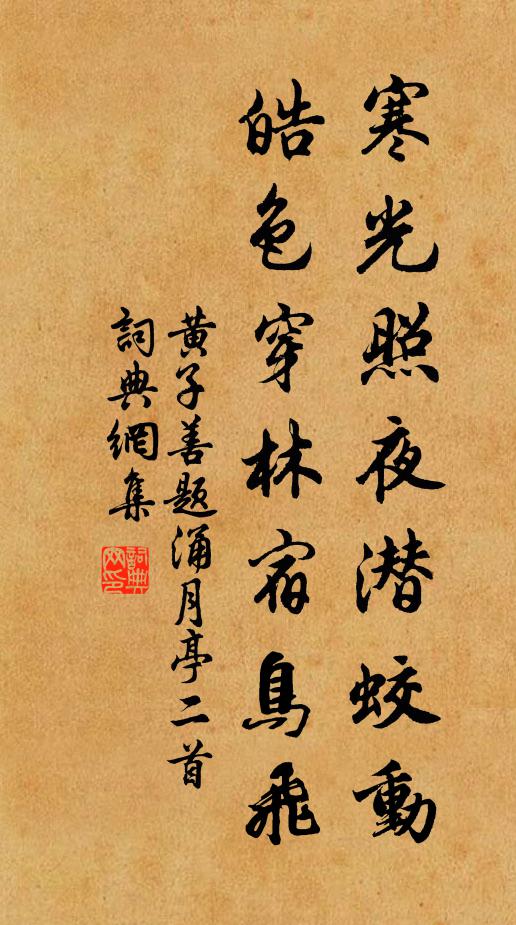 寒光照夜潜蛟動
皓色穿林宿鳥飛
黄子善題涌月亭二首
詞典網集
詞典
网印